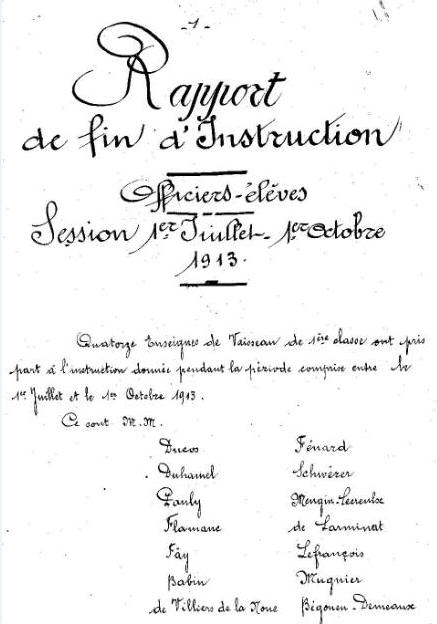 -1-
Rapport
de fin d'Instruction
Officiers-élèves
Session 1er Juillet - 1er Octobre
1913.
Quatorze Enseignes de Vaisseau de 1ère classe ont pris
part à l'instruction donnée pendant la période comprise entre le
1er Juillet et le 1er Octobre 1913.
Ce sont M.M.
Ducos Fénard
Duhamel Schwérer
Pauly Mengin-Lecreulx
Flamanc de Larminat
Fäy Lefrançois
Babin Mugnier
de Villiers de la Noue Bégouen-Demeaux